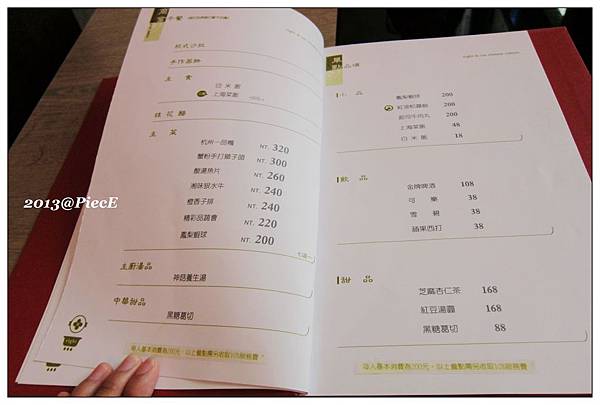 午餐
right & me chinese cuisine
欧式沙拉
手作蒸餚
主 食
白 米 飯
上海菜飯
桂 花 釀
主 菜
杭州一品鴨 NT. 320
蟹粉手打獅子頭 NT. 300
酸湯魚片 NT. 260
湘味狠水牛 NT. 240
橙香子排 NT. 240
精彩品蔬會 NT. 220
鳳梨蝦球 NT. 200
七選一
主廚湯品
神菇養生湯
中華甜品
黑糖葛切
right
每人基本消費為200元，以上餐點需另收取10%服務費。
2013@PiecE
單點品項
right & me chinese cuisine
小 品
鳳梨蝦球 200
紅油松阪齡 200
起司牛肉丸 200
上海菜飯 48
白 米 飯 18
飲 品
金牌啤酒 108
可 樂 38
雪 碧 38
蘋果西打 38
甜 品
芝麻杏仁茶 168
紅豆湯圓 168
黑糖葛切 88
每人基本消費為200元，以上餐點需另收取10%服務費